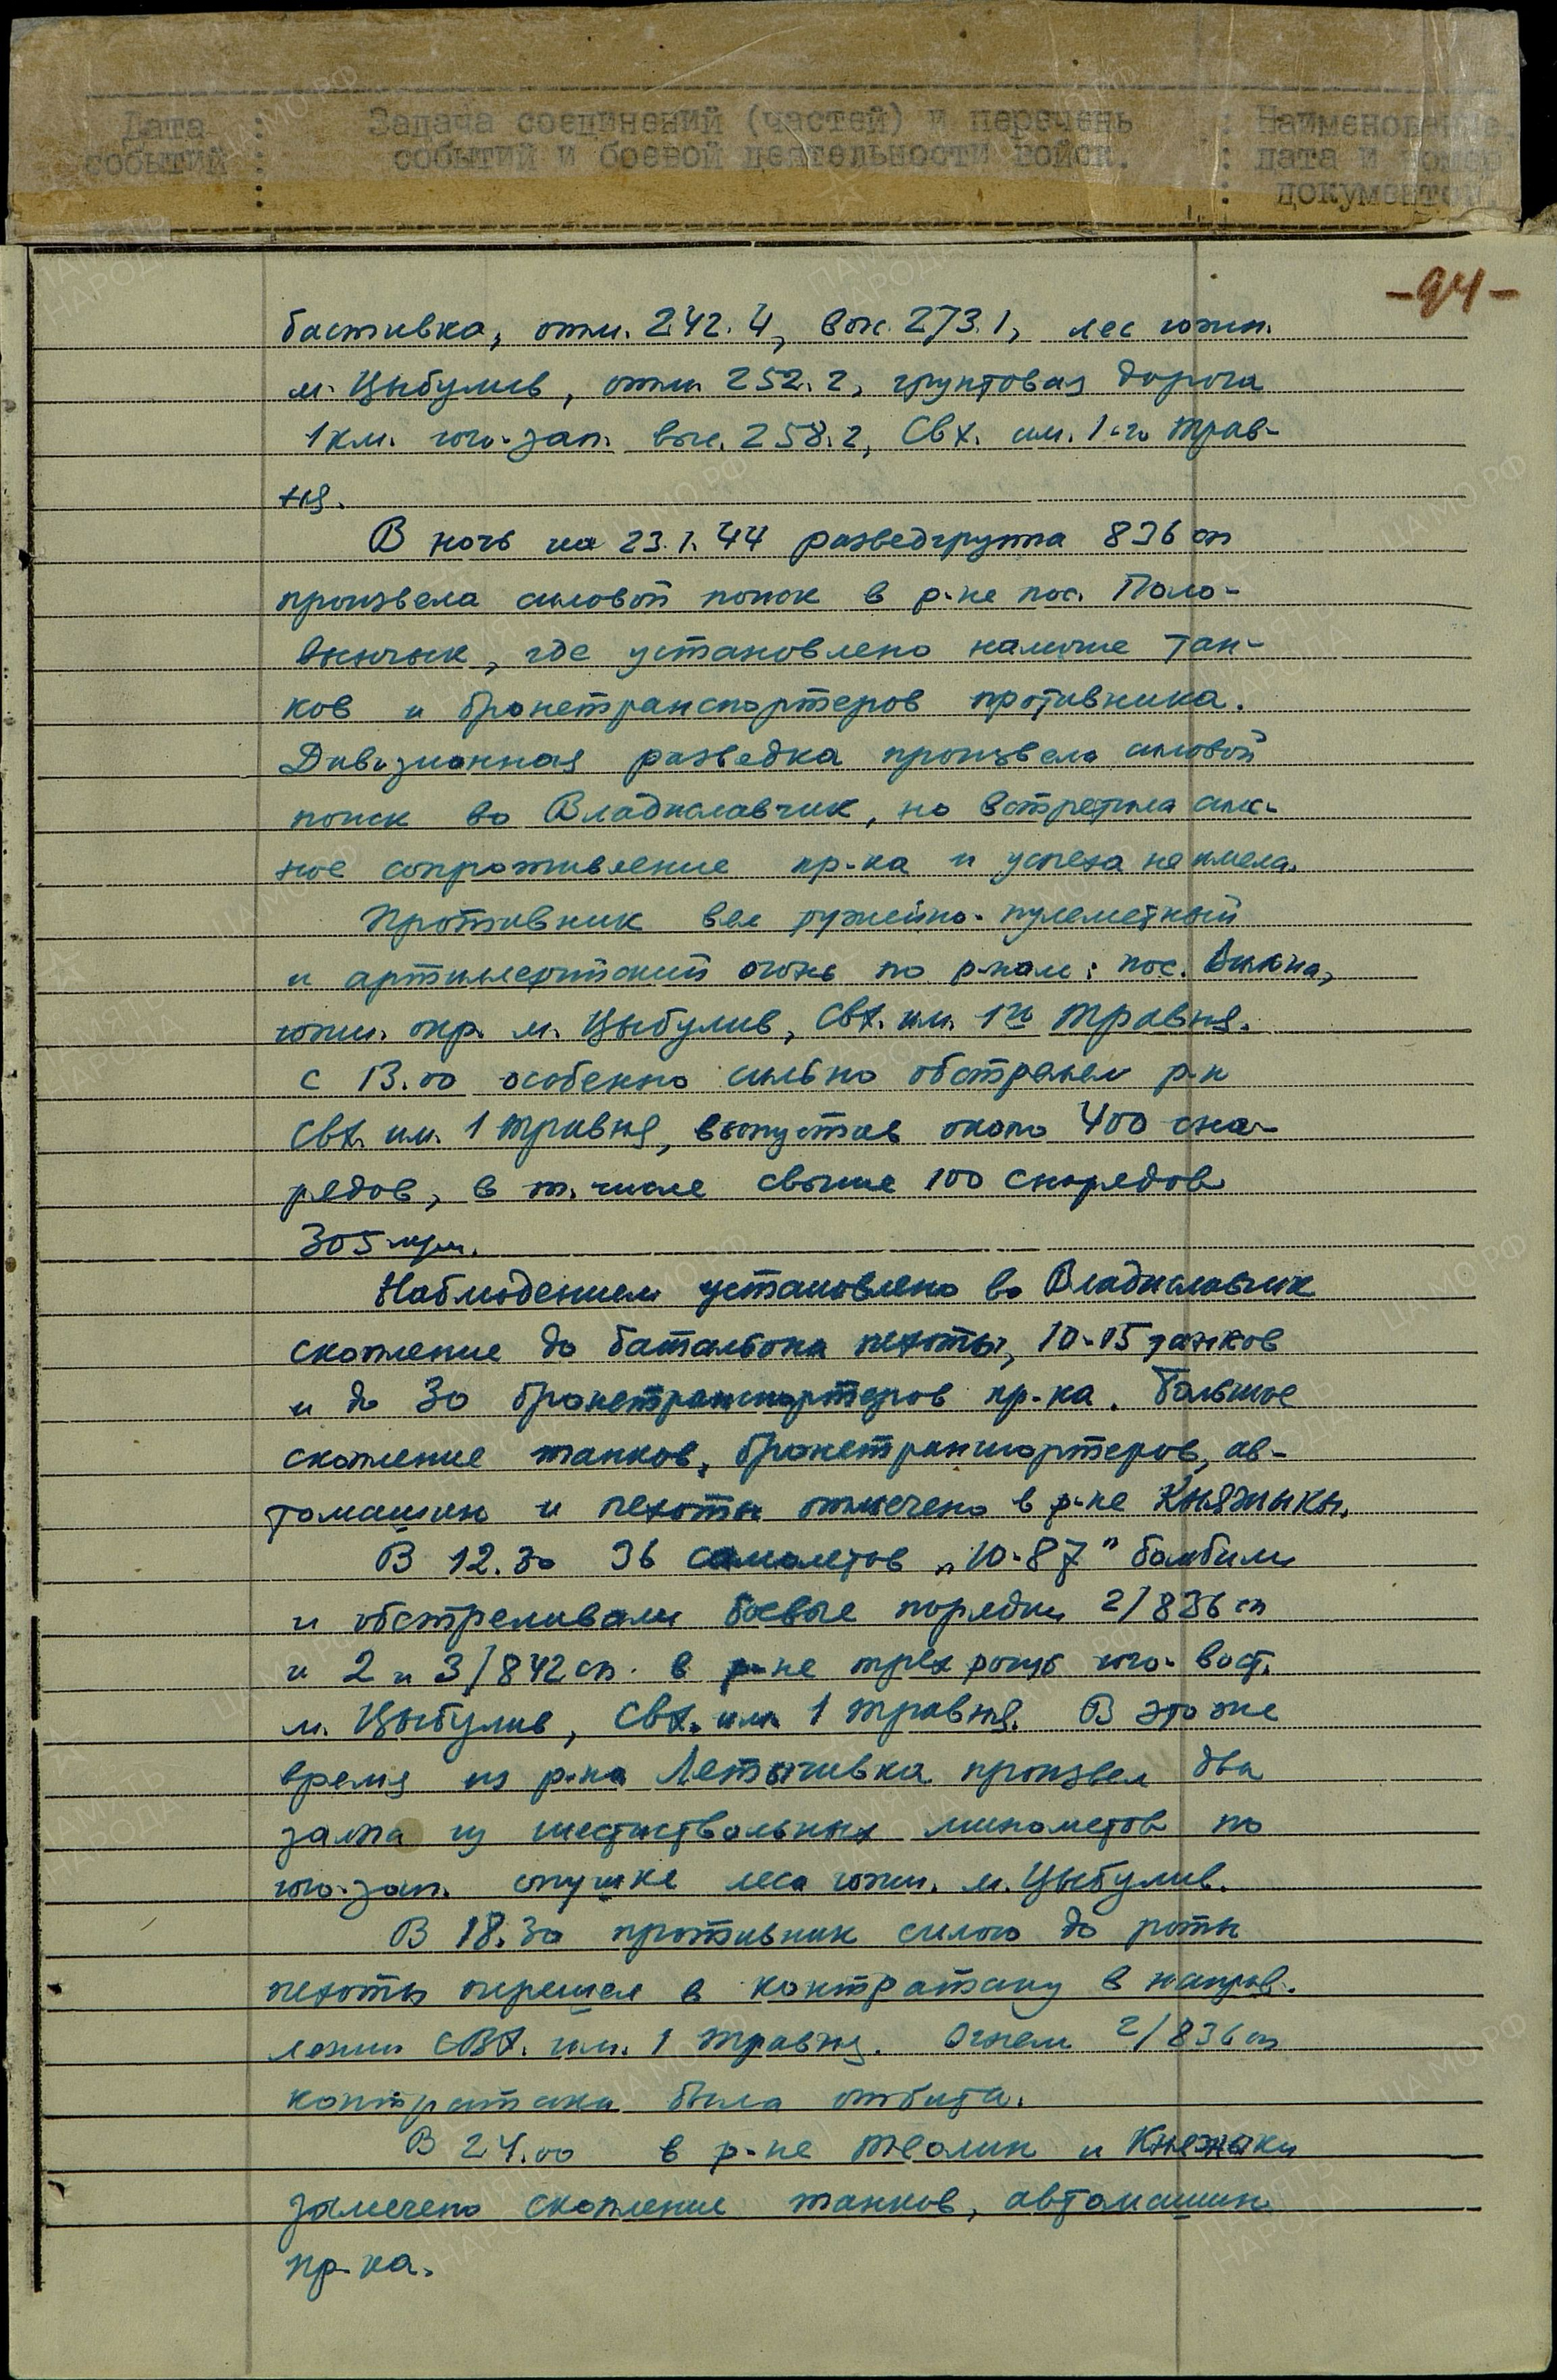 Дата : Задача соединений (частей) и перечень : Наименование,
событий : событий и боевой деятельности войск. : дата и номер
: : документов.
-94-
баштивка, отм. 242.4, выс. 273.1, лес южн.
м. Цыбулив, отм. 252.2, грунтовая дорога
1 км. юго-зап. выс. 258.2, Свх. им. 1-го трав-
ня.
В ночь на 23.1.44 разведгруппа 836 сп
произвела силовой поиск в р-не пос. Поло-
винчик, где установлено наличие тан-
ков и бронетранспортеров противника.
Дивизионная разведка произвела силовой
поиск во Владиславчик, но встретила силь-
ное сопротивление пр-ка и успеха не имела.
Противник вел ружейно-пулеметный
и артиллерийский огонь по р-нам: пос.
южн. окр. м. Цыбулив, Свх. им. 1го травня.
с 13.00 особенно сильно обстрелял р-н
Свх. им. 1 травня, выпустив около 400 сна-
рядов, в т. числе свыше 100 снарядов
305 м/м.
Наблюдением установлено во Владиславчик
скопление до батальона пехоты, 10-15 танков
и до 30 бронетранспортеров пр-ка. Большое
скопление танков, бронетранспортеров, ав-
томашин и пехоты отмечено в р-не Княжики.
В 12.30 36 самолетов „Ю-87" бомбили
и обстреливали боевые порядки 2/836 сп
и 2 и 3/842 сп. в р-не трех рощ юго-вост.
м. Цыбулив, Свх. им. 1 травня. В это же
время из р-на Летычивка произвел два
залпа из шестиствольных минометов по
юго-зап. опушке леса южн. м. Цыбулив.
В 18.30 противник силою до роты
пехоты перешел в контратаку в направ-
лении СВХ. им. 1 травня. Огнем 2/836 сп
контратака была отбита.
В 24.00 в р-не Теолин и Княжики
замечено скопление танков, автомашин
пр-ка.